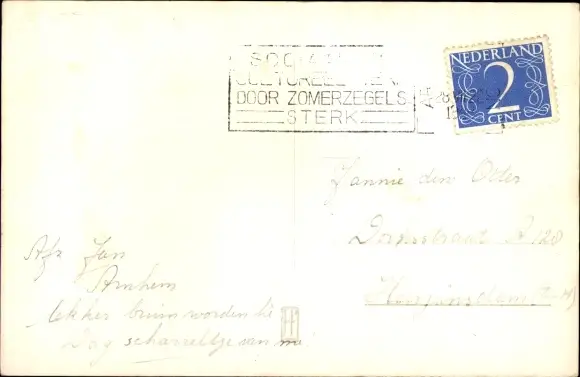 SOCIAAL EN
CULTUREEL WERK
DOOR ZOMERZEGELS
STERK
NEDERLAND
2
CENT
Jannie den Otter
Dorpsstraat A 128
Afz Jan
Arnhem
lekker bruin worden hè
Dag scharreltje van mij